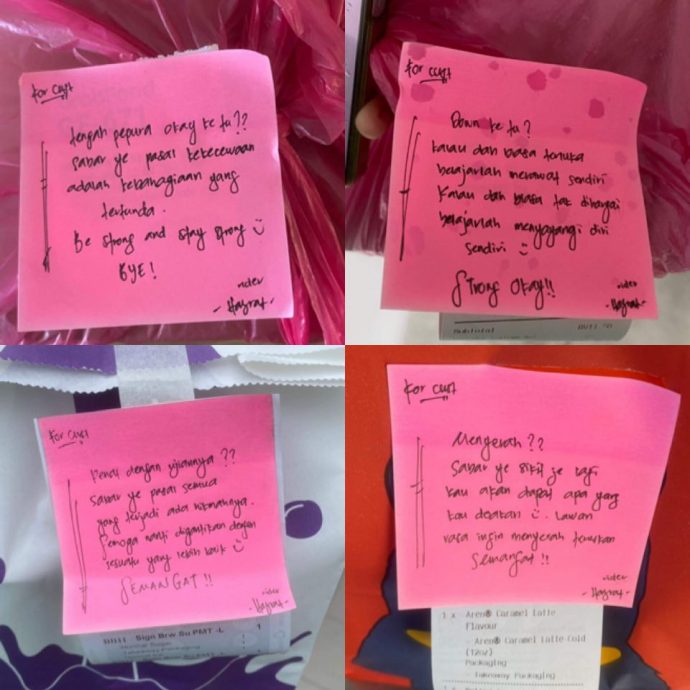 for cust
tengah pepura okay ke tu??
sabar ye pasal kekecewaan
adalah kebahagiaan yang
tertunda.
Be strong and stay strong
BYE!
rider
- Hayrat -
for cust
Down ke tu?
kalau dah biasa terluka
belajarlah merawat sendiri
kalau dah biasa tak dihargai
belajarlah menyayangi diri
sendiri
Strong Okay!!
rider
- Hayrat -
Subtotal
for cust
Penat dengan ujiannya??
sabar ye pasal semua
yang terjadi ada hikmahnya.
Semoga nanti digantikan dengan
sesuatu yang lebih baik
SEMANGAT!!
rider
- Hayrat -
Sign Brw Su PMT -L 1
Normal Sugar
Takeaway Packaging
for cust
Mengerah??
Sabar ye sikit je lagi
kau akan dapat apa yang
kau doakan. Lawan
rasa ingin menyerah teruskan
Semangat!!
rider
- Hayrat -
1 x Aren® Caramel Latte
Flavour
- Aren® Caramel Latte-Cold
(12oz)
Packaging
- Takeaway Packaging